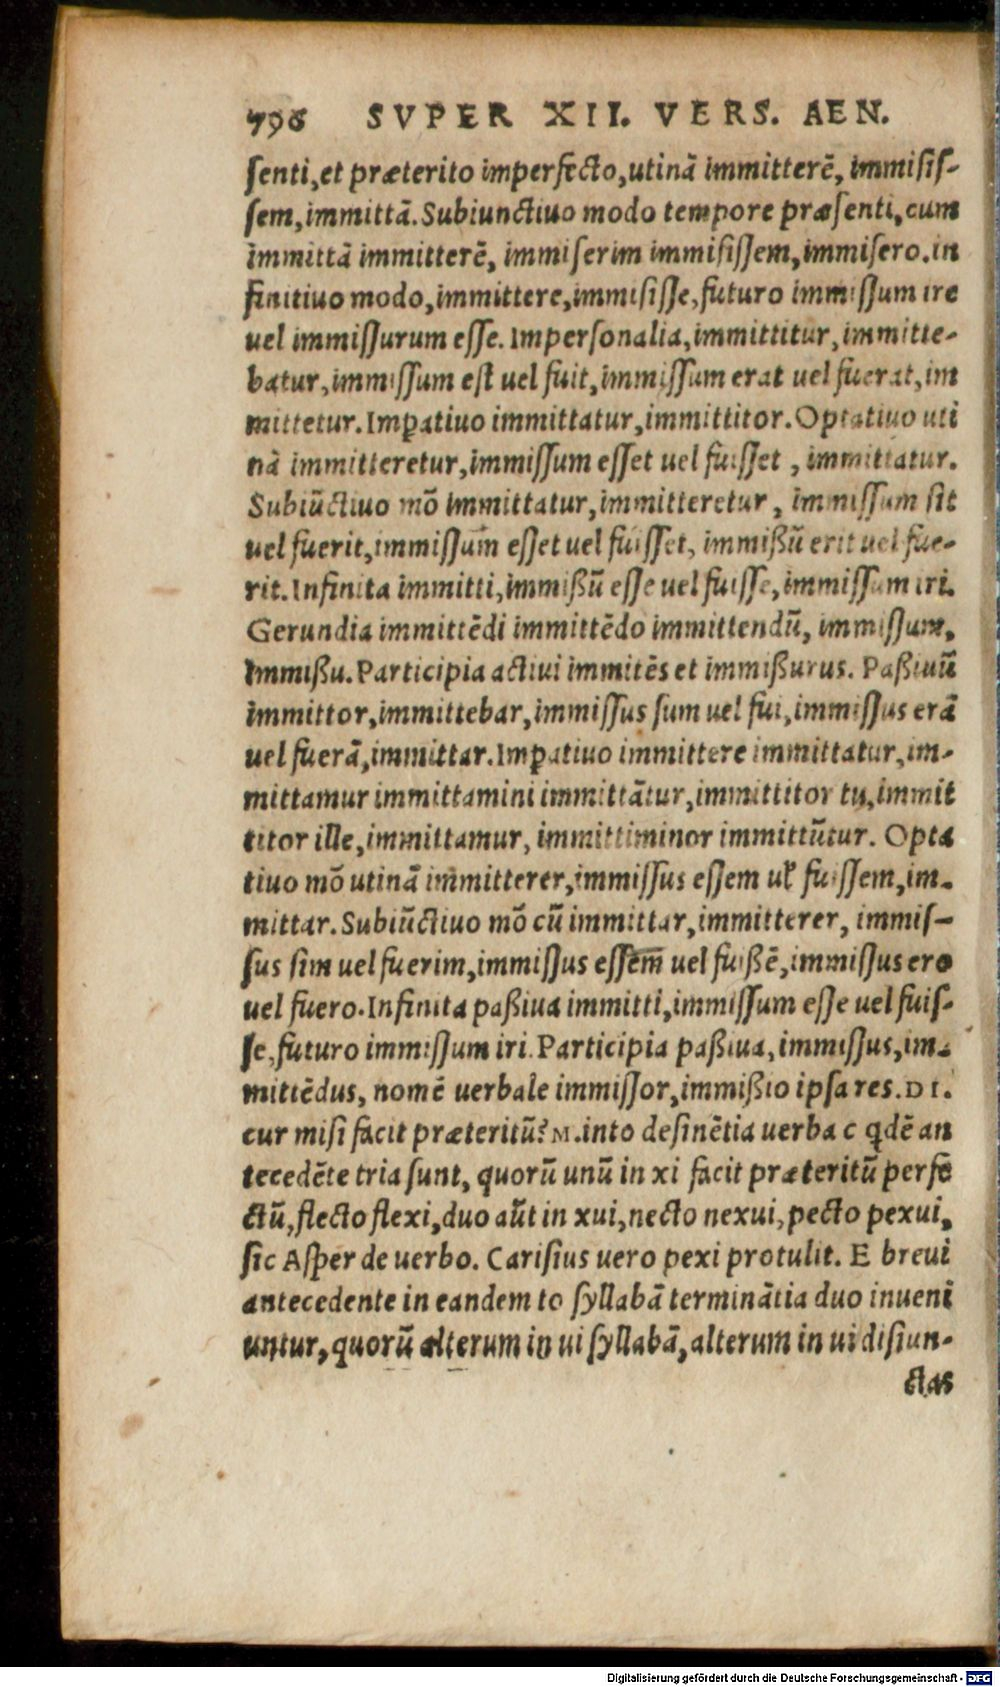 796 SVPER XII. VERS. AEN.
senti,et præterito imperfecto,utinā immitterē, immisis-
sem,immittā.Subiunctiuo modo tempore præsenti,cum
immittā immitterē, immiserim immisissem,immisero.in
finitiuo modo,immittere,immisisse,futuro immissum ire
uel immissurum esse. Impersonalia,immittitur,immitte-
batur,immissum est uel fuit,immissum erat uel fuerat,im
mittetur.Imꝑatiuo immittatur,immittitor.Optatiuo uti
nā immitteretur,immissum esset uel fuisset, immittatur.
Subiūctiuo mō immittatur,immitteretur, immissum sit
uel fuerit,immissum esset uel fuisset, immißū erit uel fue-
rit.Infinita immitti,immißū esse uel fuisse,immissum iri.
Gerundia immittēdi immittēdo immittendū, immissum,
immißu.Participia actiui immitēs et immißurus. Paßiuū
immittor,immittebar,immissus sum uel fui,immissus erā
uel fuerā,immittar.Imꝑatiuo immittere immittatur,im-
mittamur immittamini immittātur,immittitor tu,immit
titor ille,immittamur, immittiminor immittūtur. Opta
tiuo mō utinā immitterer,immissus essem uł fuissem,im-
mittar.Subiūctiuo mō cū immittar,immitterer, immis-
sus sim uel fuerim,immissus essem̄ uel fuißē,immissus ero
uel fuero.Infinita paßiua immitti,immissum esse uel fuis-
se,futuro immissum iri.Participia paßiua,immissus,im-
mittēdus, nomē uerbale immissor,immißio ipsa res.DI.
cur misi facit præteritū?M.into desinētia uerba c q̄dē an
tecedēte tria sunt, quorū unū in xi facit præteritū perfe
ctū,flecto flexi,duo aūt in xui,necto nexui,pecto pexui,
sic Asper de uerbo. Carisius uero pexi protulit. E breui
antecedente in eandem to syllabā terminātia duo inueni
untur,quorū alterum in ui syllabā,alterum in ui disiun-
ctas
Digitalisierung gefördert durch die Deutsche Forschungsgemeinschaft - DFG